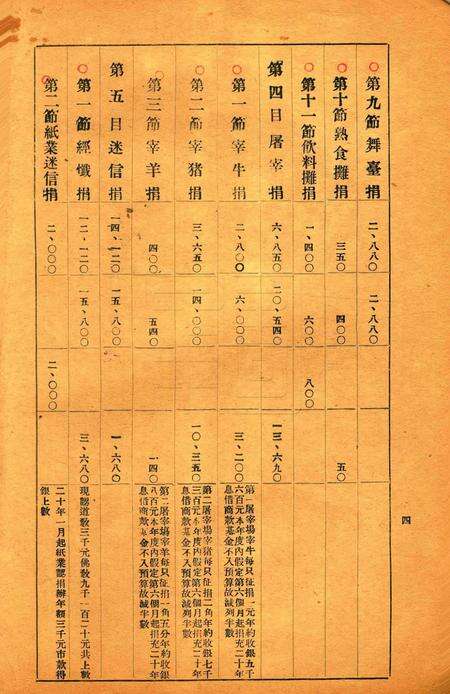 第九節舞臺捐 二、八八〇 二、八八〇
第十節熟食攤捐 三五〇 四〇〇 五〇
第十一節飲料攤捐 一、四〇〇 六〇〇 八〇〇
第四目屠宰捐 六、八五〇 二〇、五四〇 一三、六九〇
第一節宰牛捐 二、八〇〇 六、〇〇〇 三、二〇〇
第一屠宰場宰牛每只征捐一元年約收銀五千
六百元本年度內假定第六個月起捐充二十年
息借商款基金不入預算故減列半數
第二節宰猪捐 三、六五〇 一四、〇〇〇 一〇、三五〇
第二屠宰場宰猪每只征捐二角年約收銀七千
三百元本年度內假定第六個月起捐充二十年
息借商款基金不入預算故減列半數
第三節宰羊捐 四〇〇 五四〇 一四〇
第二屠宰場宰羊每只征捐一角五分年約收銀
八百元本年度內假定第六個月起捐充二十年
息借商款基金不入預算故減半數
第五目迷信捐 一四、一二〇 一五、八〇〇 一、六八〇
第一節經懺捐 一二、一二〇 一五、八〇〇 三、六八〇
現認道教三千元佛敎九千一百二十元共上數
第二節紙業迷信捐 二、〇〇〇 二、〇〇〇
二十年一月起紙業認捐辦年額三千元市款得
銀上數
四